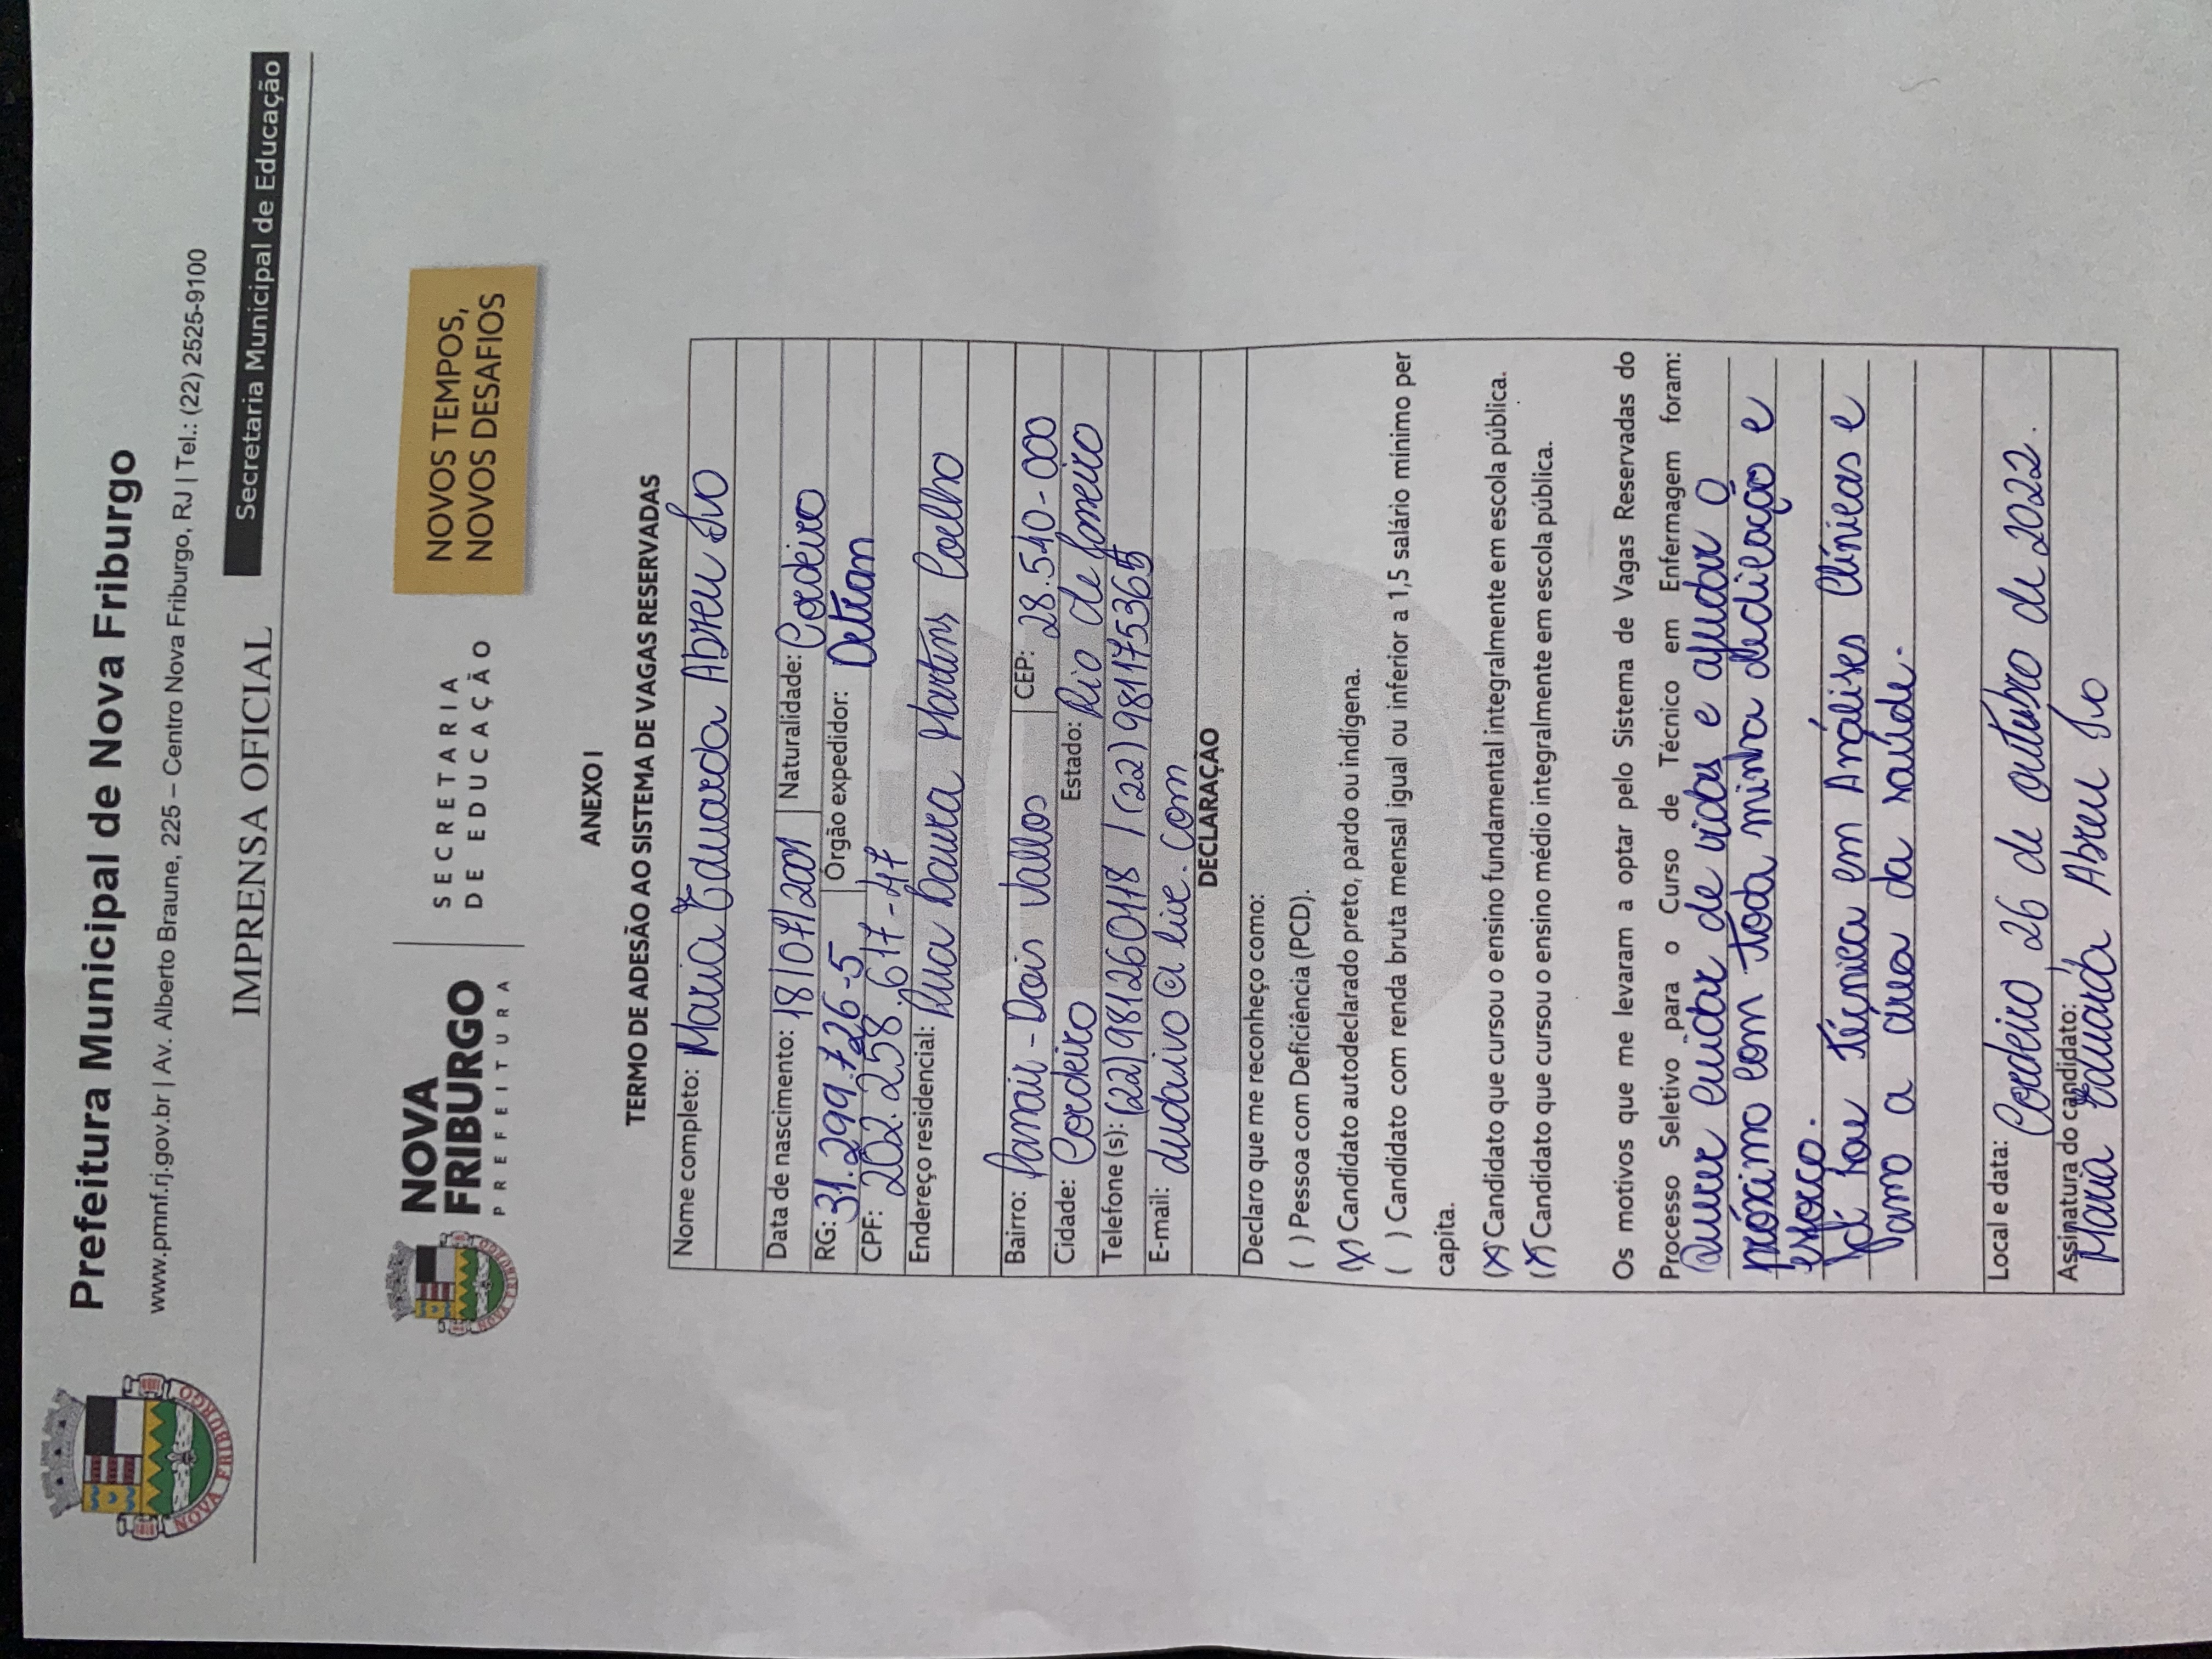 Prefeitura Municipal de Nova Friburgo
www.pmnf.rj.gov.br | Av. Alberto Braune, 225 – Centro Nova Friburgo, RJ | Tel.: (22) 2525-9100
IMPRENSA OFICIAL
Secretaria Municipal de Educação
NOVA FRIBURGO
NOVA
FRIBURGO
PREFEITURA
SECRETARIA
DE EDUCAÇÃO
NOVOS TEMPOS,
NOVOS DESAFIOS
ANEXO I
TERMO DE ADESÃO AO SISTEMA DE VAGAS RESERVADAS
Nome completo: Maria Eduarda Abreu Ivo
Data de nascimento: 18/07/2001 Naturalidade: Cordeiro
RG: 31.299.726-5 Órgão expedidor: Detran
CPF: 202.258.617-47
Endereço residencial: Rua Martins Coelho
Bairro: Panair - Dois Vallos CEP: 28.540-000
Cidade: Cordeiro Estado: Rio de Janeiro
Telefone (s): (22)981260118 / (22)981175365
E-mail: dudaivo@live.com
DECLARAÇÃO
Declaro que me reconheço como:
( ) Pessoa com Deficiência (PCD).
(X) Candidato autodeclarado preto, pardo ou indígena.
( ) Candidato com renda bruta mensal igual ou inferior a 1,5 salário mínimo per
capita.
(X) Candidato que cursou o ensino fundamental integralmente em escola pública.
(X) Candidato que cursou o ensino médio integralmente em escola pública.
Os motivos que me levaram a optar pelo Sistema de Vagas Reservadas do
Processo Seletivo para o Curso de Técnico em Enfermagem foram:
Querer cuidar de vidas e ajudar o
próximo com toda minha dedicação e
esforço.
Já sou técnica em Análises Clínicas e
amo a área da saúde.
Local e data: Cordeiro, 26 de outubro de 2022.
Assinatura do candidato:
Maria Eduarda Abreu Ivo